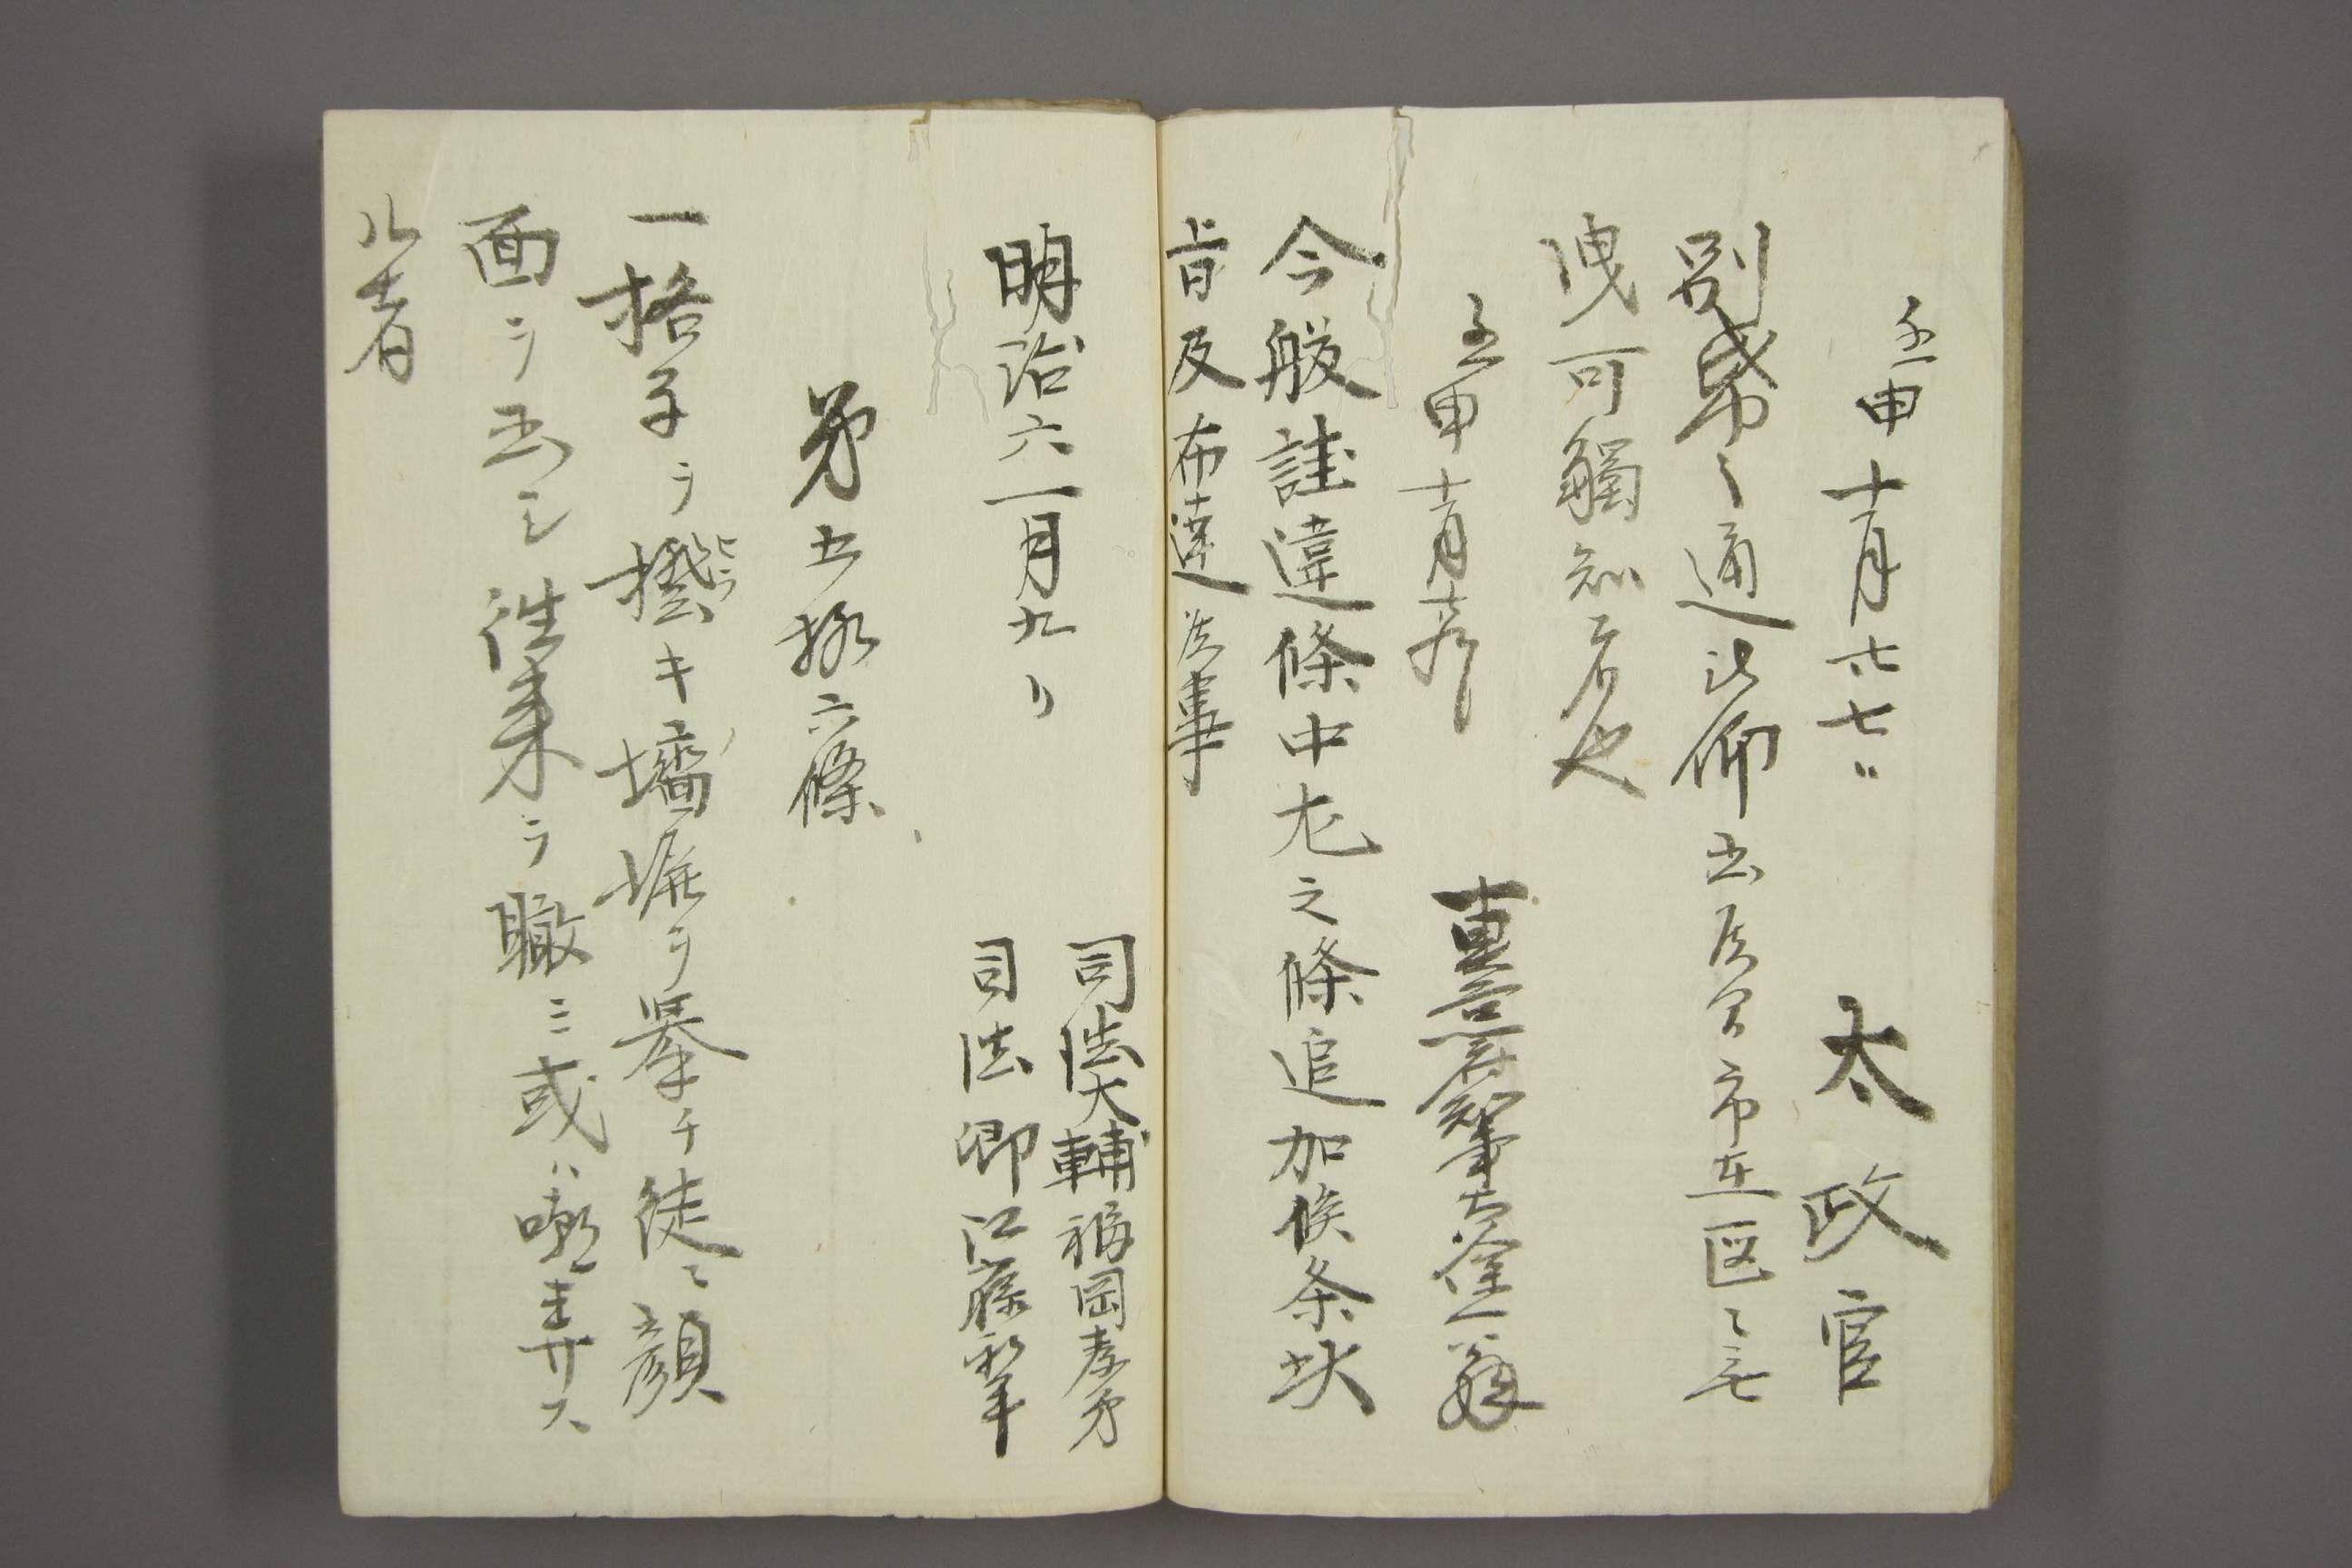 壬申十一月廿七日
太政官
別帋之通被仰出候間市在区々無
洩可觸知者也
壬申十一月廿八日
東京府知事大久保一翁
今般註違條中左之條追加候条此
旨及布達候事
明治六一月九日
司法大輔福岡孝弟
司法卿江藤新平
第五拾六條
一格子ヲ撥キ墻塀ヲ攀チ徒ニ顔
面ヲ出シ往来ヲ瞰ミ或ハ嘲哢ス
ル者